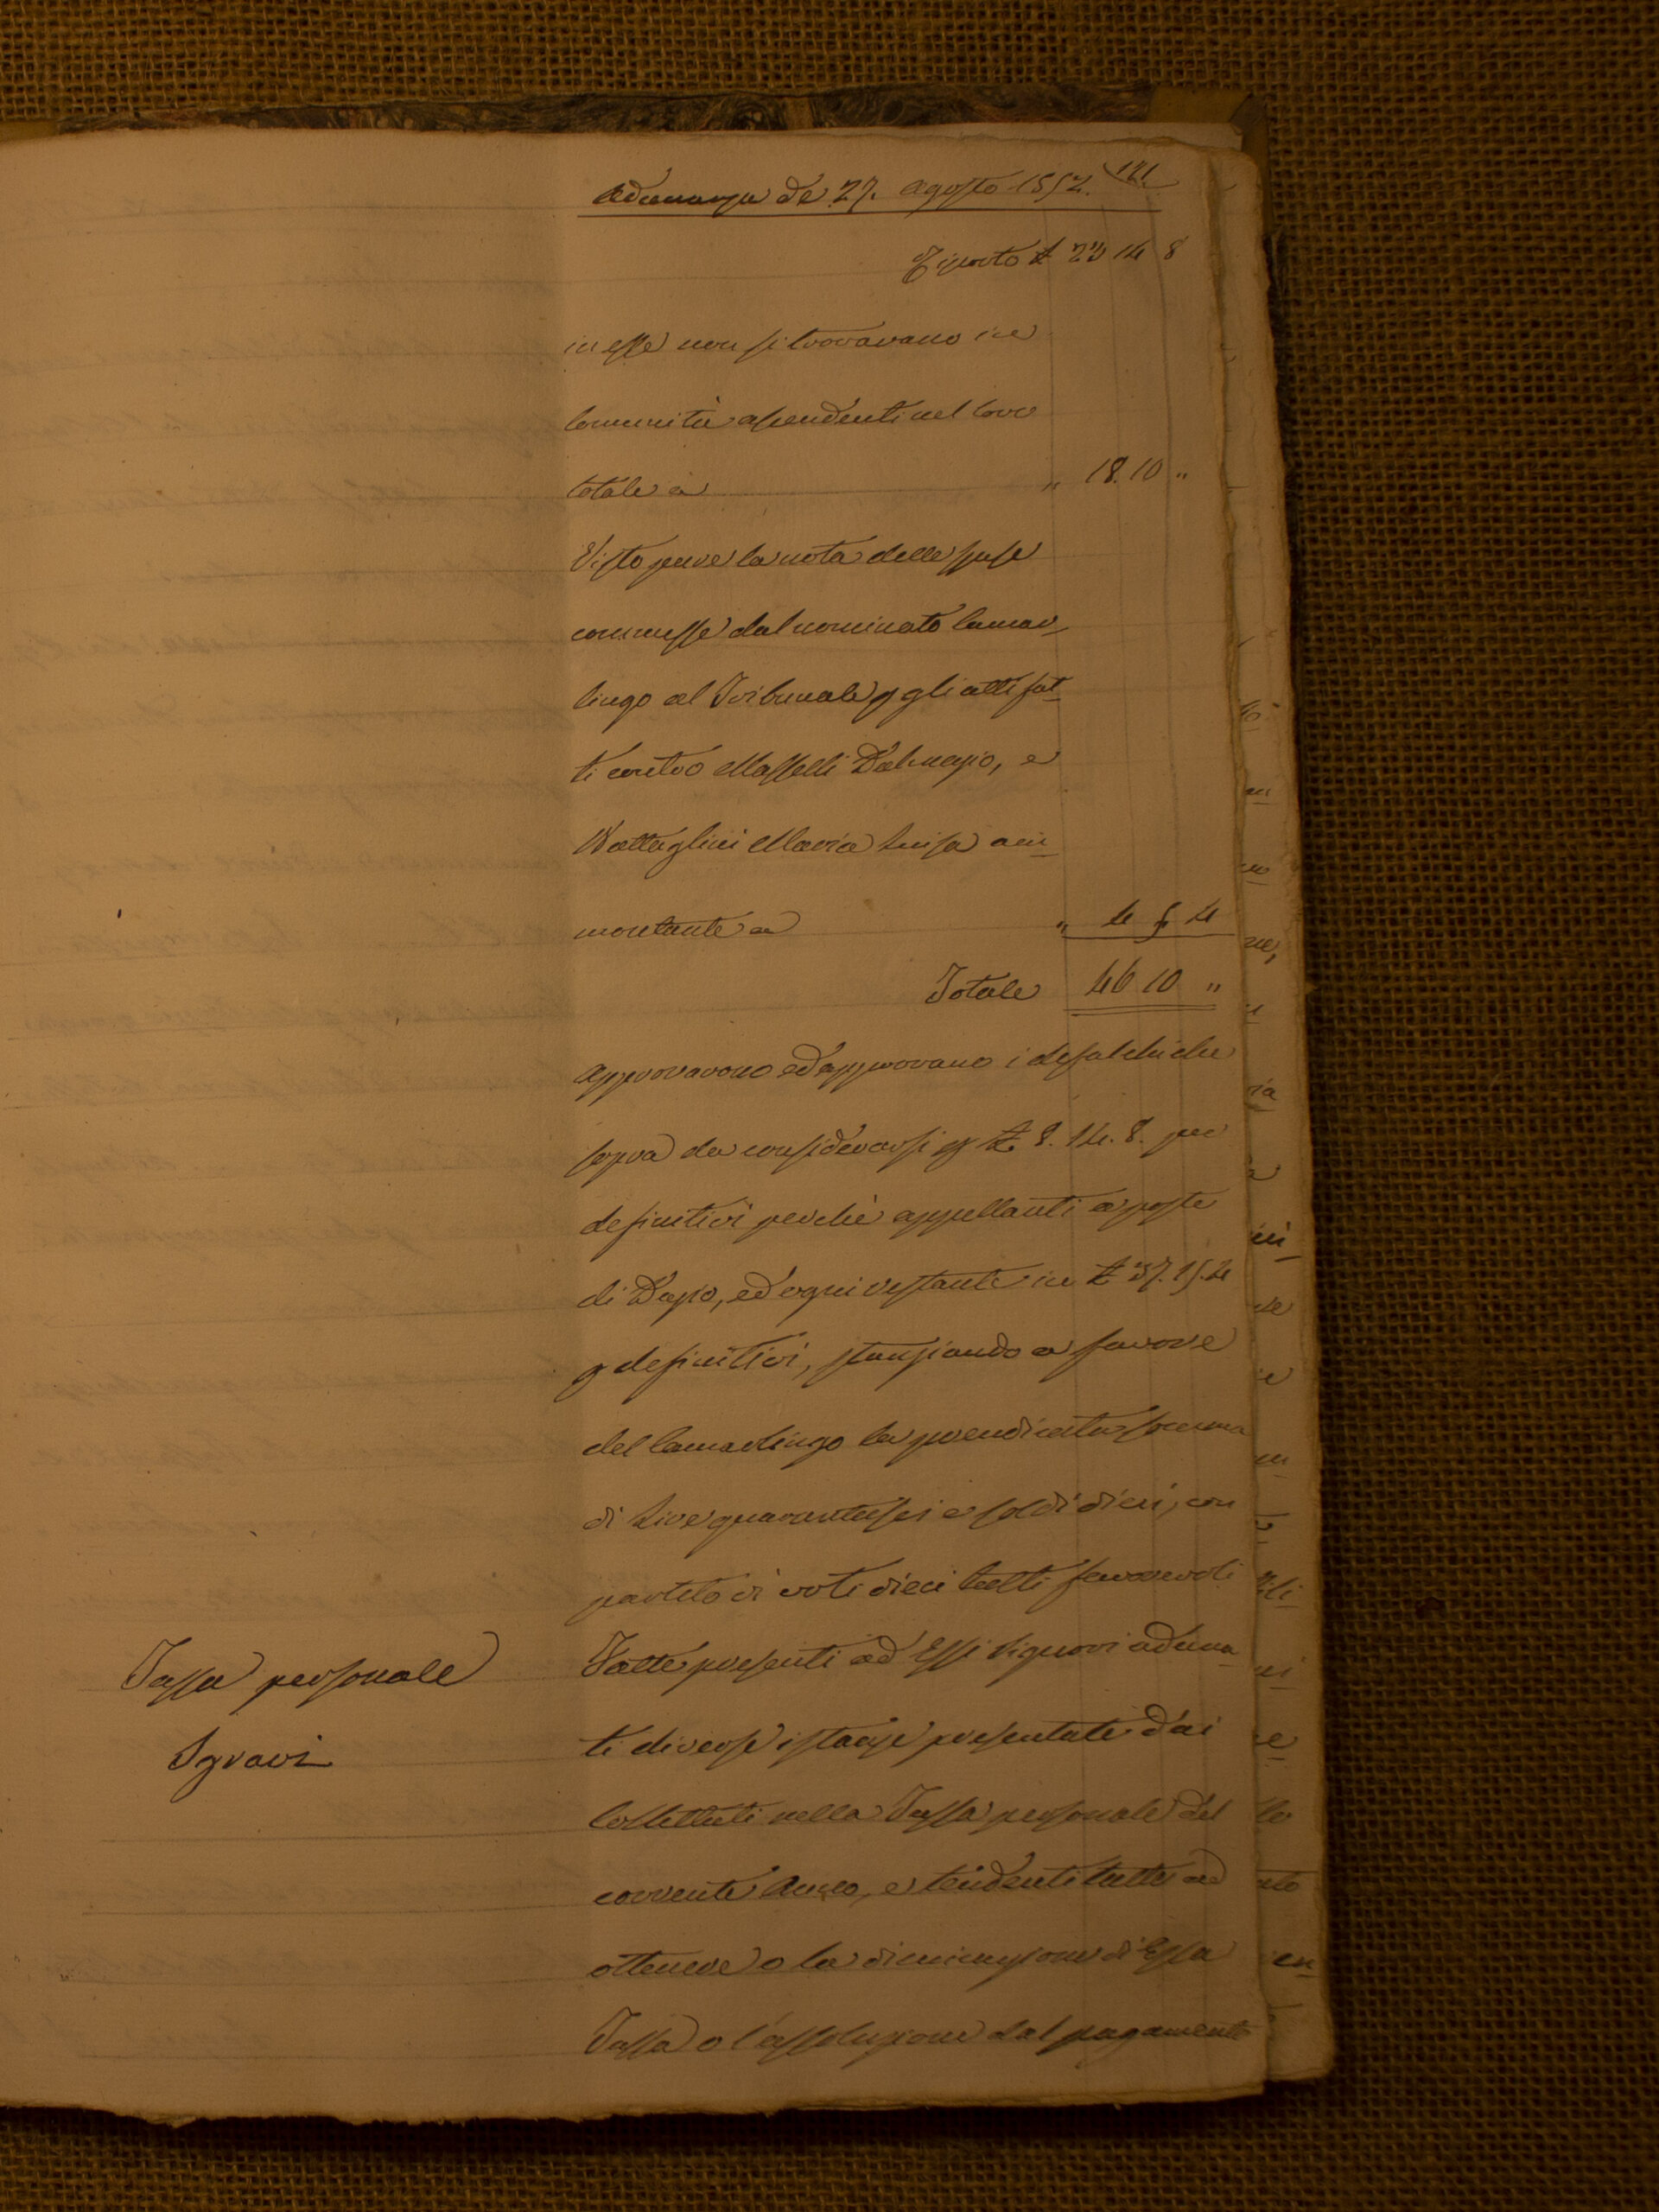 Adunanza de 27. Agosto 1852. 121.
Riporto £ 23 14 8
in esse non si trovavano in
Comunità ascendenti nel loro
totale a " 18. 10 "
Visto pure la nota delle spese
commesse dal nominato Camar,
lingo al Tribunale p gli atti fat
ti contro Masselli Dalmazio, e
Battaglini Maria Luisa am
montante a " 4 5 4
Totale 46 10 "
Approvarono ed approvano i defalchi che
sopra da considerarsi p £ 8. 14. 8. per
definitivi perchè appellanti a poste
di Dazio, ed ogni restante in £ 37. 15. 4
p definitivi, stanziando a favore
del Camarlingo la preindicata somma
di Lire quarantasei e soldi dieci, con
partito di voti dieci tutti favorevoli
Tassa personale
Sgravi
Fatte presenti ad Essi Signori aduna
ti diverse istanze presentate dai
Collettati nella Tassa personale del
corrente Anno, e tendenti tutte ad
ottenere o la diminuzione di Essa
Tassa o l'assoluzione dal pagamento